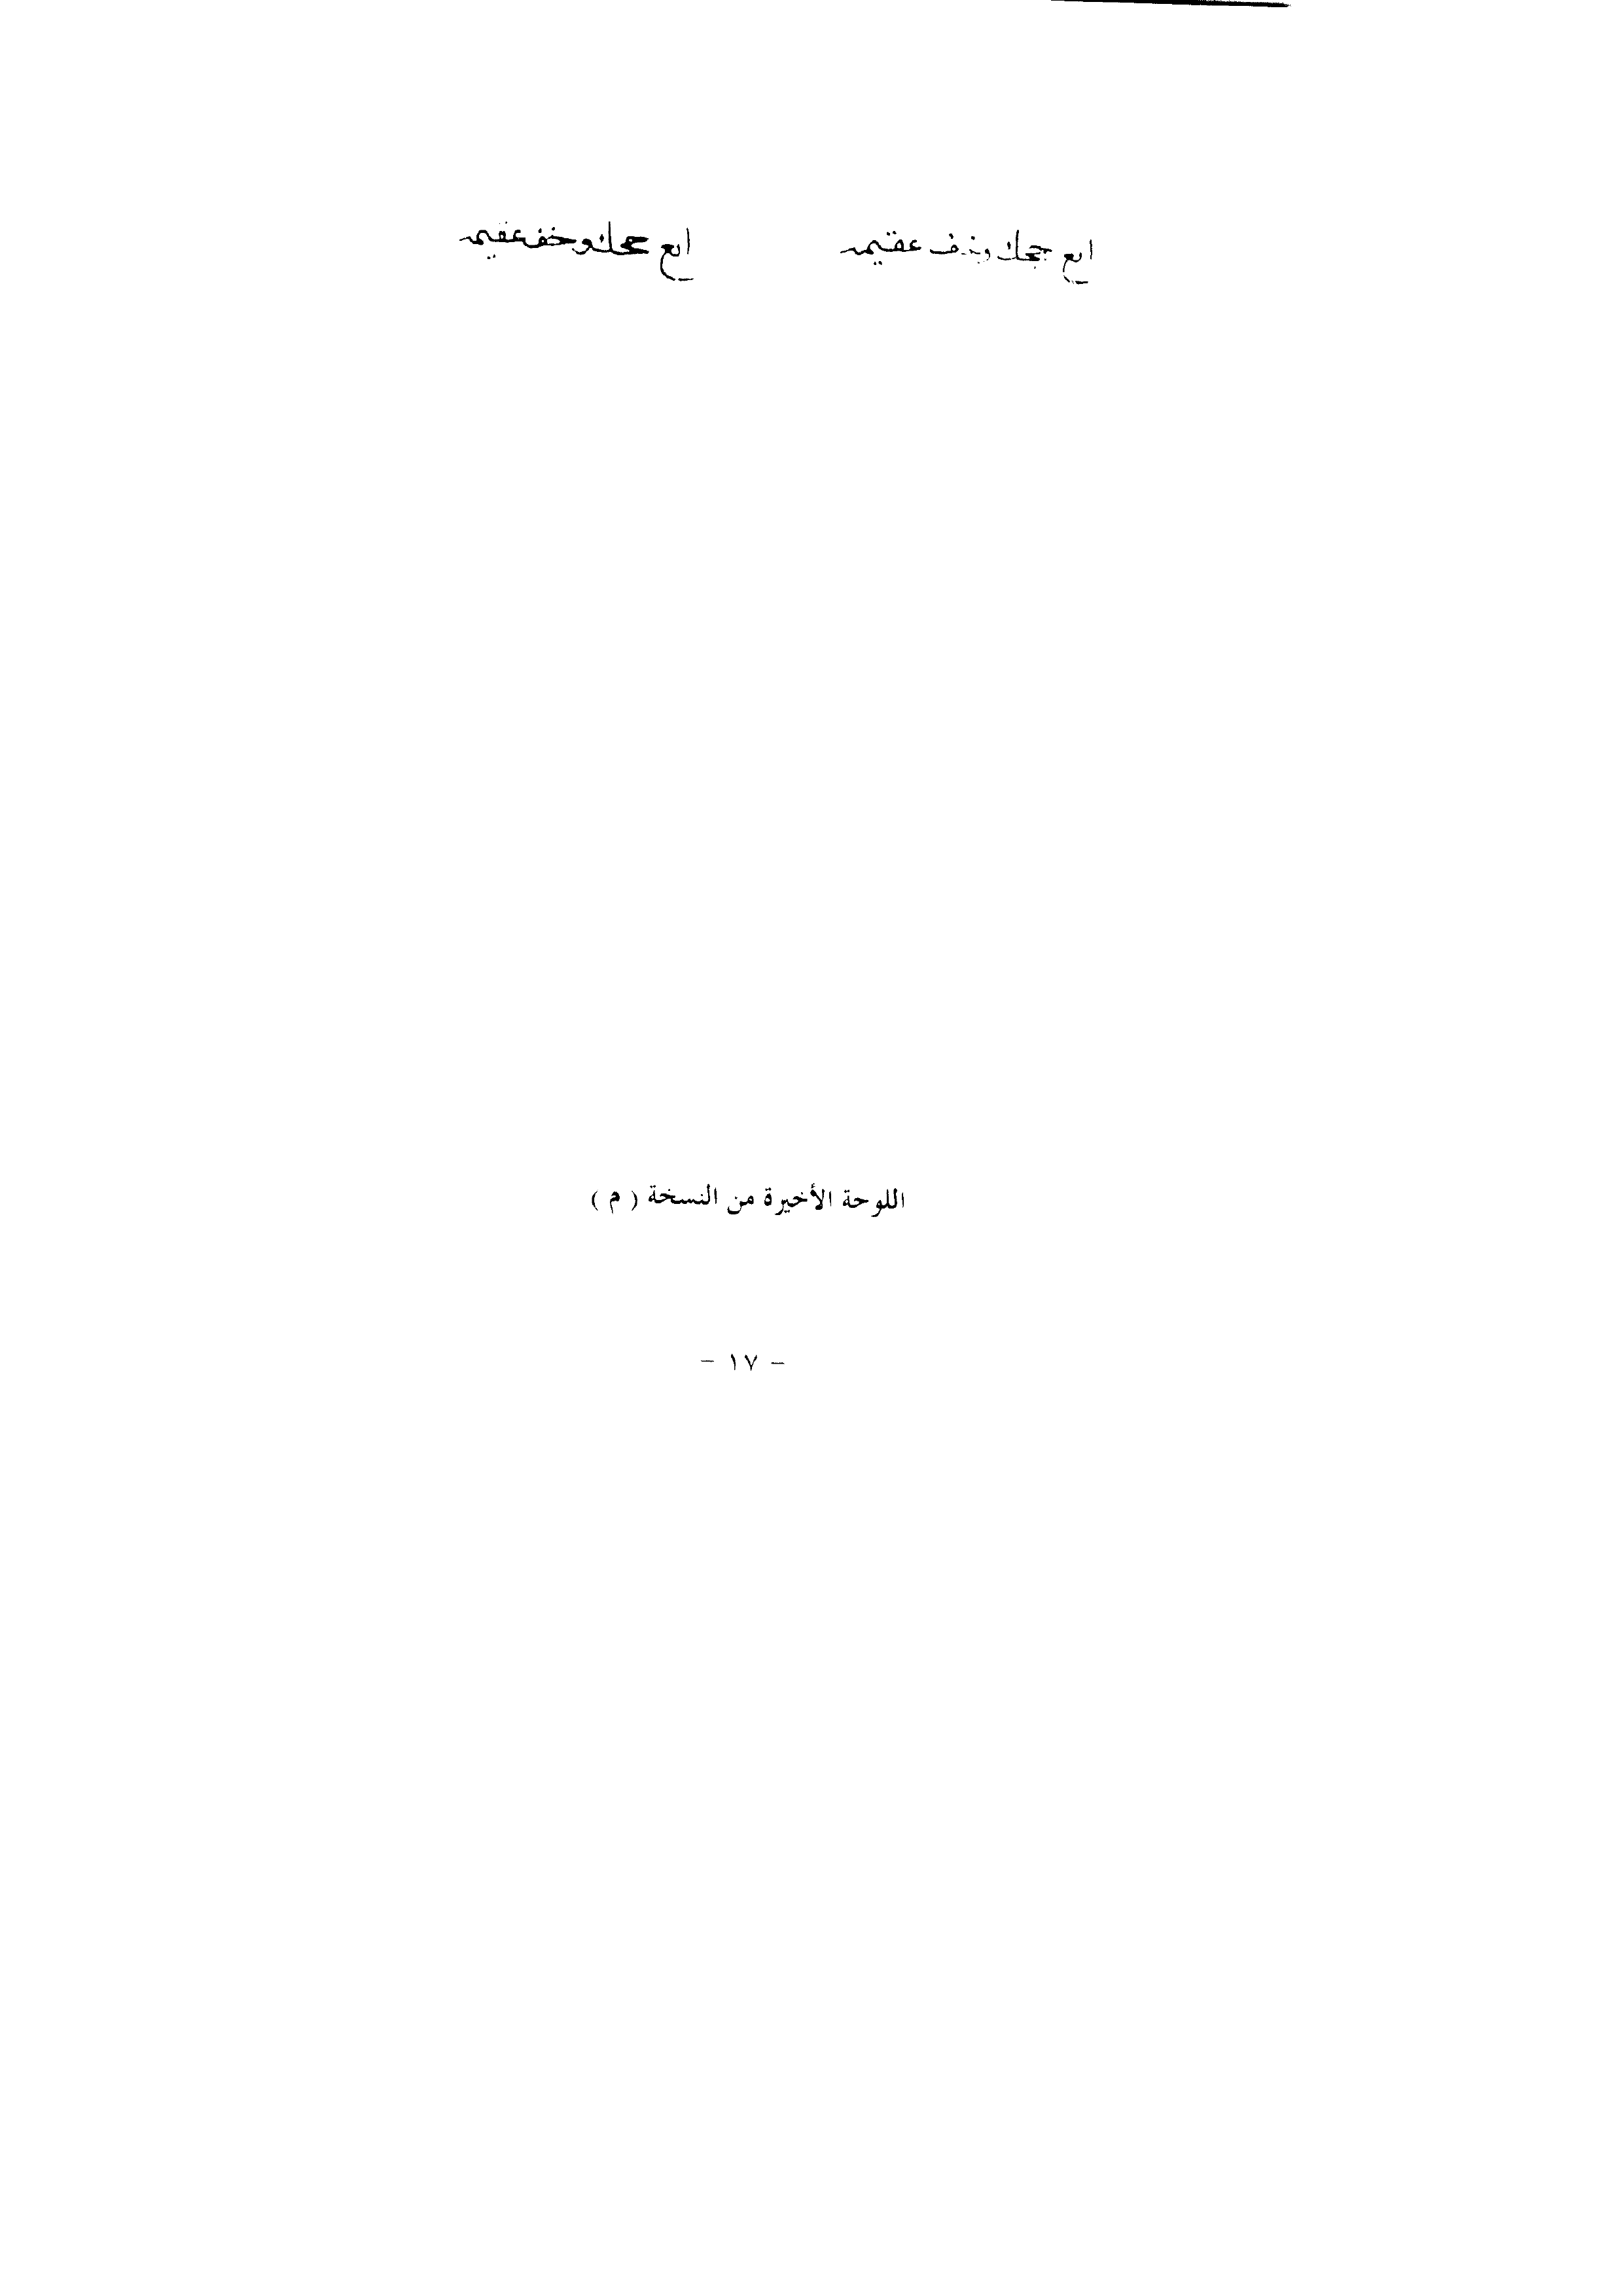 ابع حجك وخف عقيمه ابع حجك وخف عقيمه
اللوحة الأخيرة من النسخة ( م )
– ١٧ –